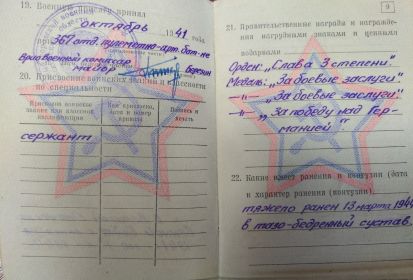 19. Военную присягу принял
октябрь 1941 года
при 367 отд. пулеметно-арт. бат-не
Врио военный комиссар
Березин
20. Присвоение воинских званий и классности
по специальности
Присвоено воинское
звание или классная
квалификация
Кем присвоено,
дата и номер
приказа
Подпись и
печать
сержант
9
21. Правительственные награды и награжде-
ния нагрудными знаками и ценными
подарками
Орден: „Слава 3 степени"
Медаль: „За боевые заслуги"
—"— „За боевые заслуги"
—"— „За победу над Гер-
манией"
22. Какие имеет ранения и контузии (дата
и характер ранения (контузии)
тяжело ранен 13 марта 1944
в тазо-бедренный сустав.